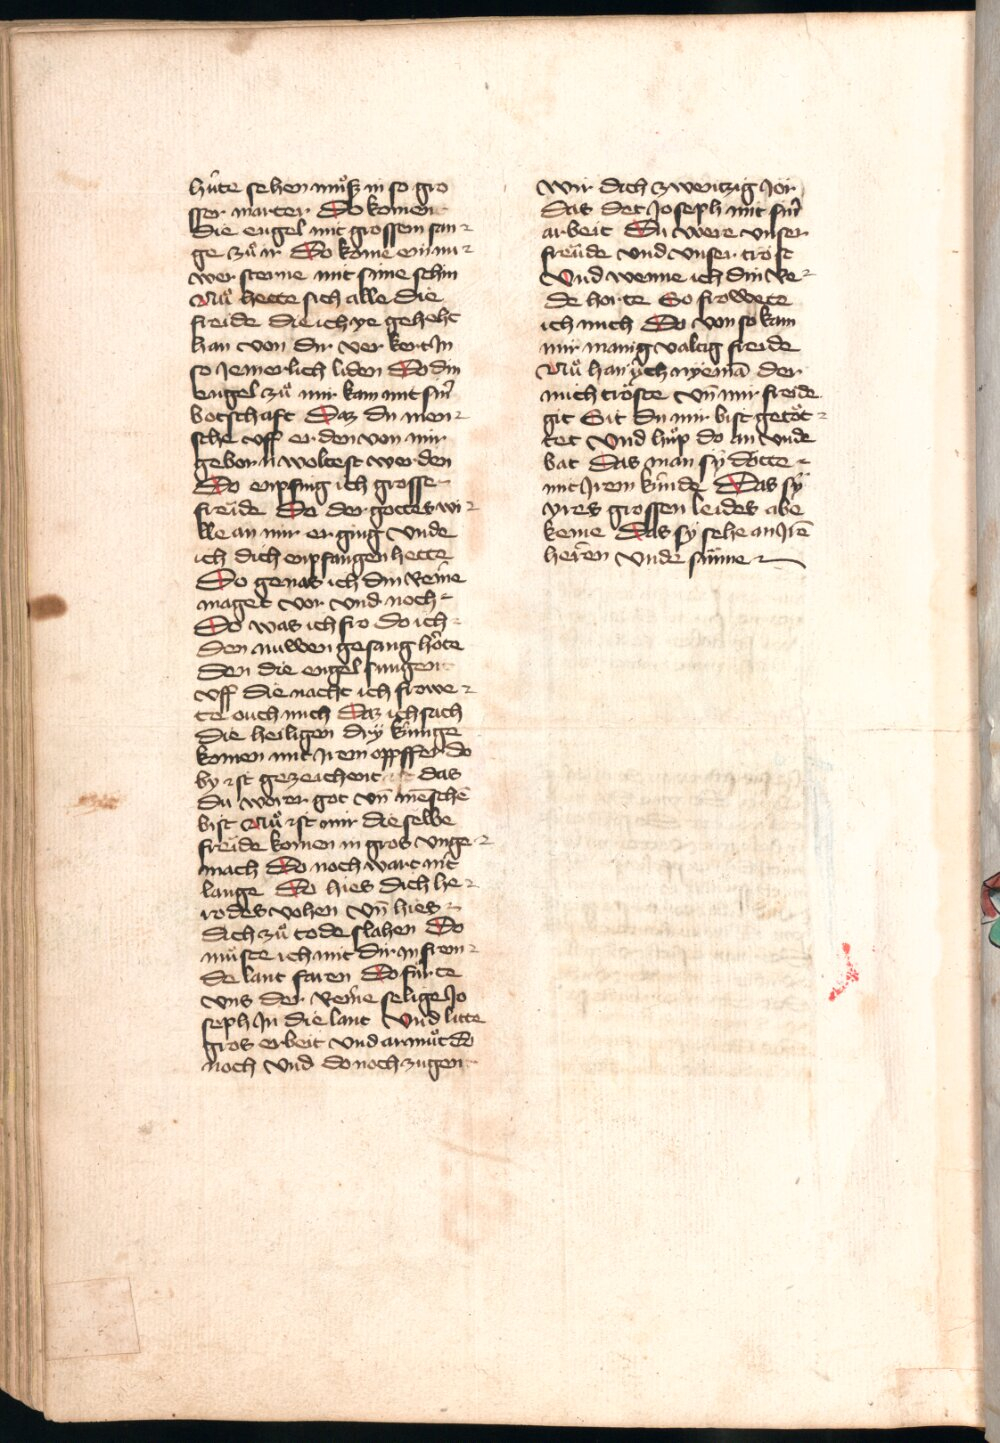 hüte sehen muͦß in so gro
sser marter Do komen
die engel mit grossem san-
ge zuͦ ir Do kome ein nu-
wer sterne mit sime schin
Nuͦ hette sich alle die
freide die ich ye geheht
han von dir verkert In
so Jemerlich liden Do din
engel zuͦ mir kam mit sinr̄
botschaft Daz du men-
sche vff erden von mir
geborn woltest werden
Do enpfing ich grosse
freüde Do der gottes wi-
lle an mir erging vnde
ich dich enpfangen hette
Do genas ich din reine
maget vor vnd noch
Do was ich fro do ich
den nuwen gesang hörte
den die engel sungent
vff die nacht ich frowe-
te ouch mich Daz ich sach
die heiligen dry künige
komen mit Irem oppffer do
by ist gezeichent das
du worer got vn̄ mēschē
bist Nuͦ ist mir die selbe
freüde komen in gros vnge-
mach Do noch wart nit
lange Do hies dich he-
rodes vohen vn̄ hies
dich zuͦ tode slahen Do
müste ich mit dir in frem-
de lant faren Do fürte
vns der reine selige Jo
seph In die lant Vnd litte
gros erbeit vnd armuͦt do
noch vnd do noch zugen
wir dich zwentzig Jor
Das det Joseph mit sinr̄
arbeit Du were vnser
freüde vnd vnser trost
Vnd wenne ich din re-
de horte So frowete
ich mich Do von so kam
mir manigvaltig freide
Nuͦ han ich nyemā der
mich tröste vn̄ mir freide
git Sit du mir bist getöt-
tet Vnd huͦp do an vnde
bat Das man sy dötte
mit Irem kinde Das sy
yres grossen leides abe
keme Das sy sehe an Irē
herren vnde sünne